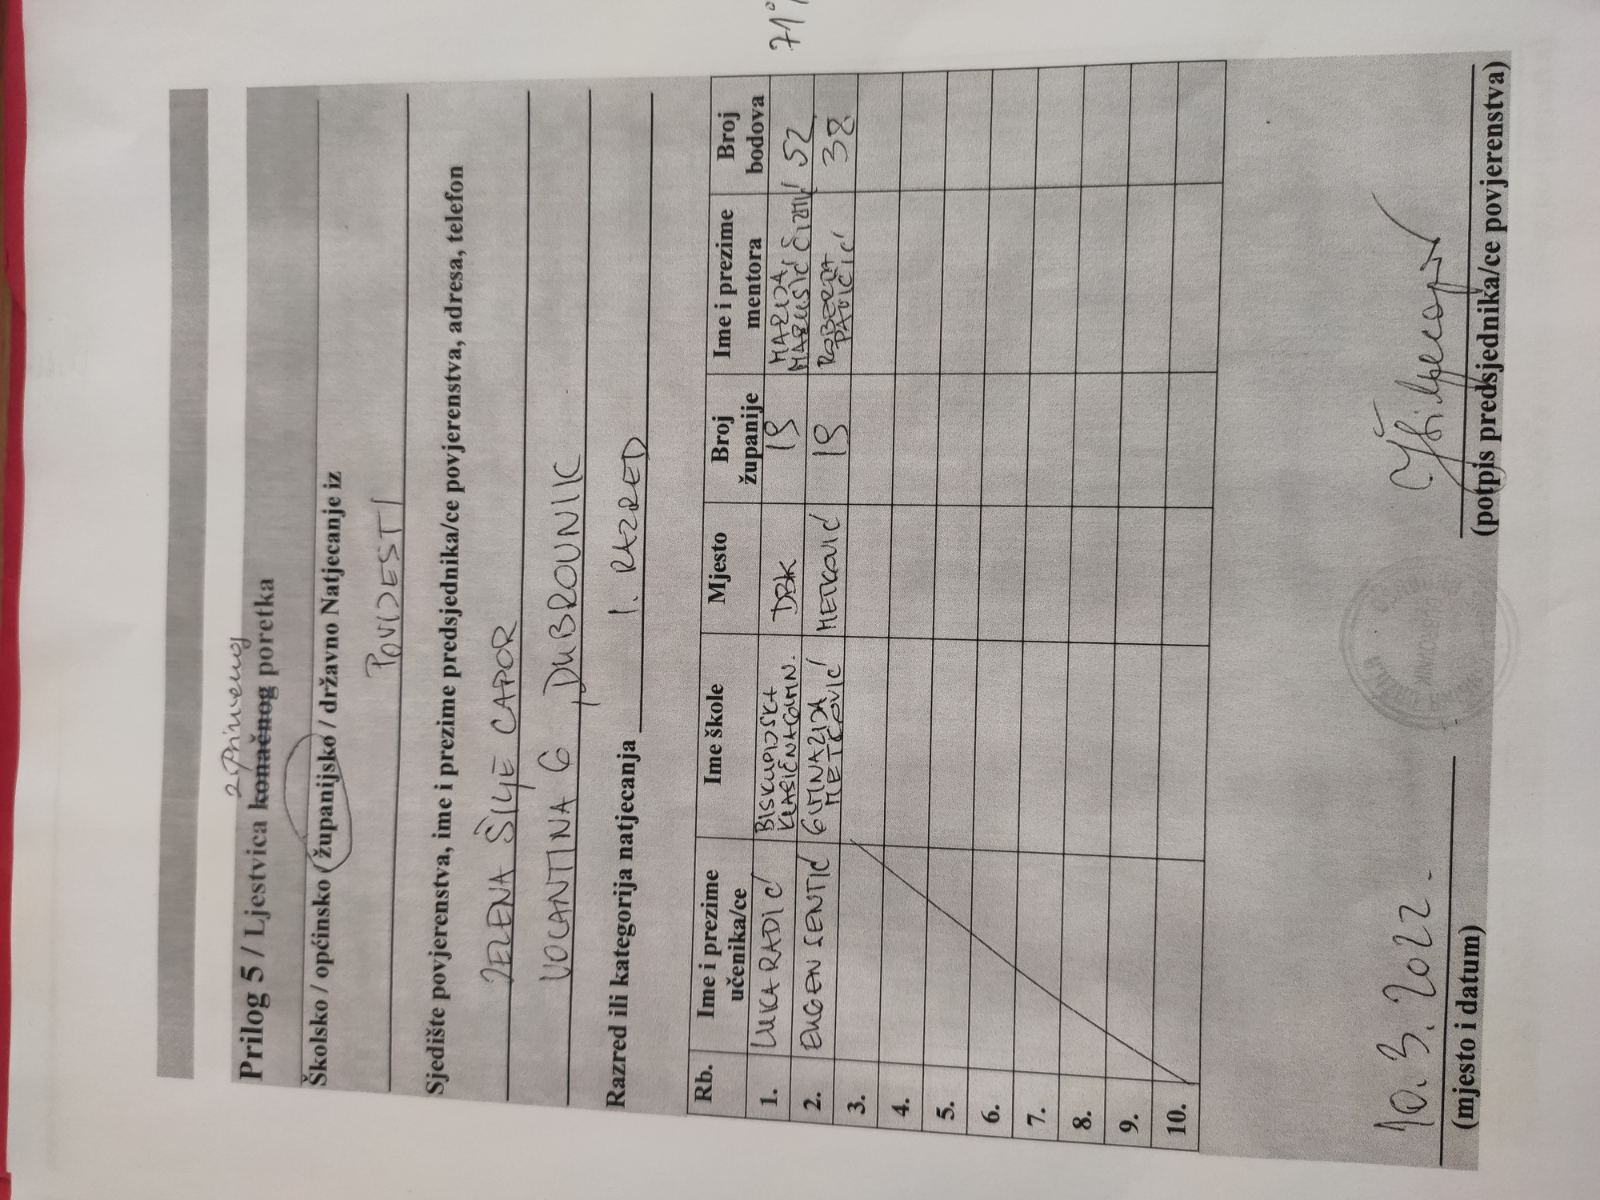 71%
privremenog
Prilog 5 / Ljestvica konačnog poretka
Školsko / općinsko / županijsko / državno Natjecanje iz
POVIJESTI
Sjedište povjerenstva, ime i prezime predsjednika/ce povjerenstva, adresa, telefon
JELENA ŠILJE CAPOR
VOCANTINA 6, DUBROVNIK
Razred ili kategorija natjecanja 1. RAZRED
Rb. Ime i prezime učenika/ce Ime škole Mjesto Broj županije Ime i prezime mentora Broj bodova
1. LUKA RADIĆ BISKUPIJSKA KLASIČNA GIMN. DBK 19 MARIJA MARUŠIĆ 52
2. EUGEN SENTIĆ GIMNAZIJA METKOVIĆ METKOVIĆ 19 ROBERTA PAVIČIĆ 38
3.
4.
5.
6.
7.
8.
9.
10.
10. 3. 2022.
(mjesto i datum)
(potpis predsjednika/ce povjerenstva)